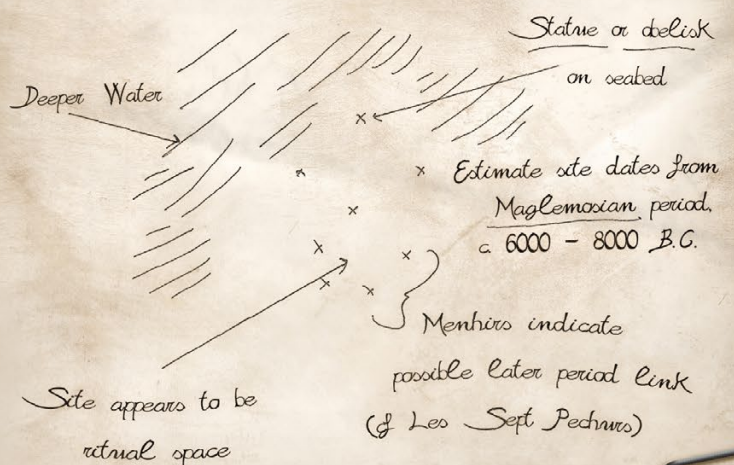 Statue or obelisk
on seabed
Deeper Water
Estimate site dates from
Maglemosian period,
c. 6000 – 8000 B.C.
Menhirs indicate
possible later period link
(cf Les Sept Pecheurs)
Site appears to be
ritual space